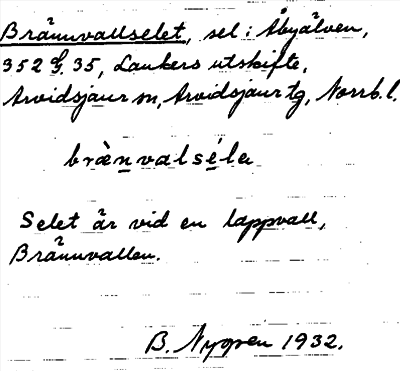 Brännvallselet, sel i Åbyälven,
352 G. 35, Laukers utskifte,
Arvidsjaur sn, Arvidsjaur tg, Norrb. l.
brànvalséle
Selet är vid en lappvall,
Brännvallen.
B. Nygren 1932.